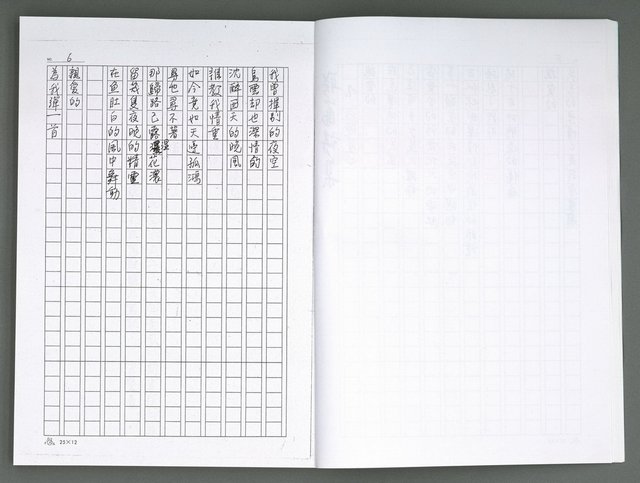 NO. 6
我曾揮別的夜空
烏雲卻也深情的
沈醉西天的晚風
誰教我情重
如今竟如天邊孤鴻
尋也尋不著
那歸路已露濕花濃
留幾隻夜晚的精靈
在魚肚白的風中舞動
親愛的
為我彈一首
25×12